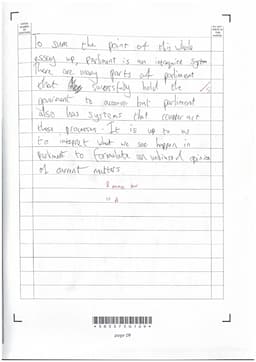 To sum the point of this whole
essay up, parliment is an intraquire system
there are many parts of parliment
that sucessfully hold the
goverment to account but parliament
also has systems that counter act
these processes. It is up to us
to interpret what we see happen in
parliment to formulate an unbiased opinion
of current matters
page 09